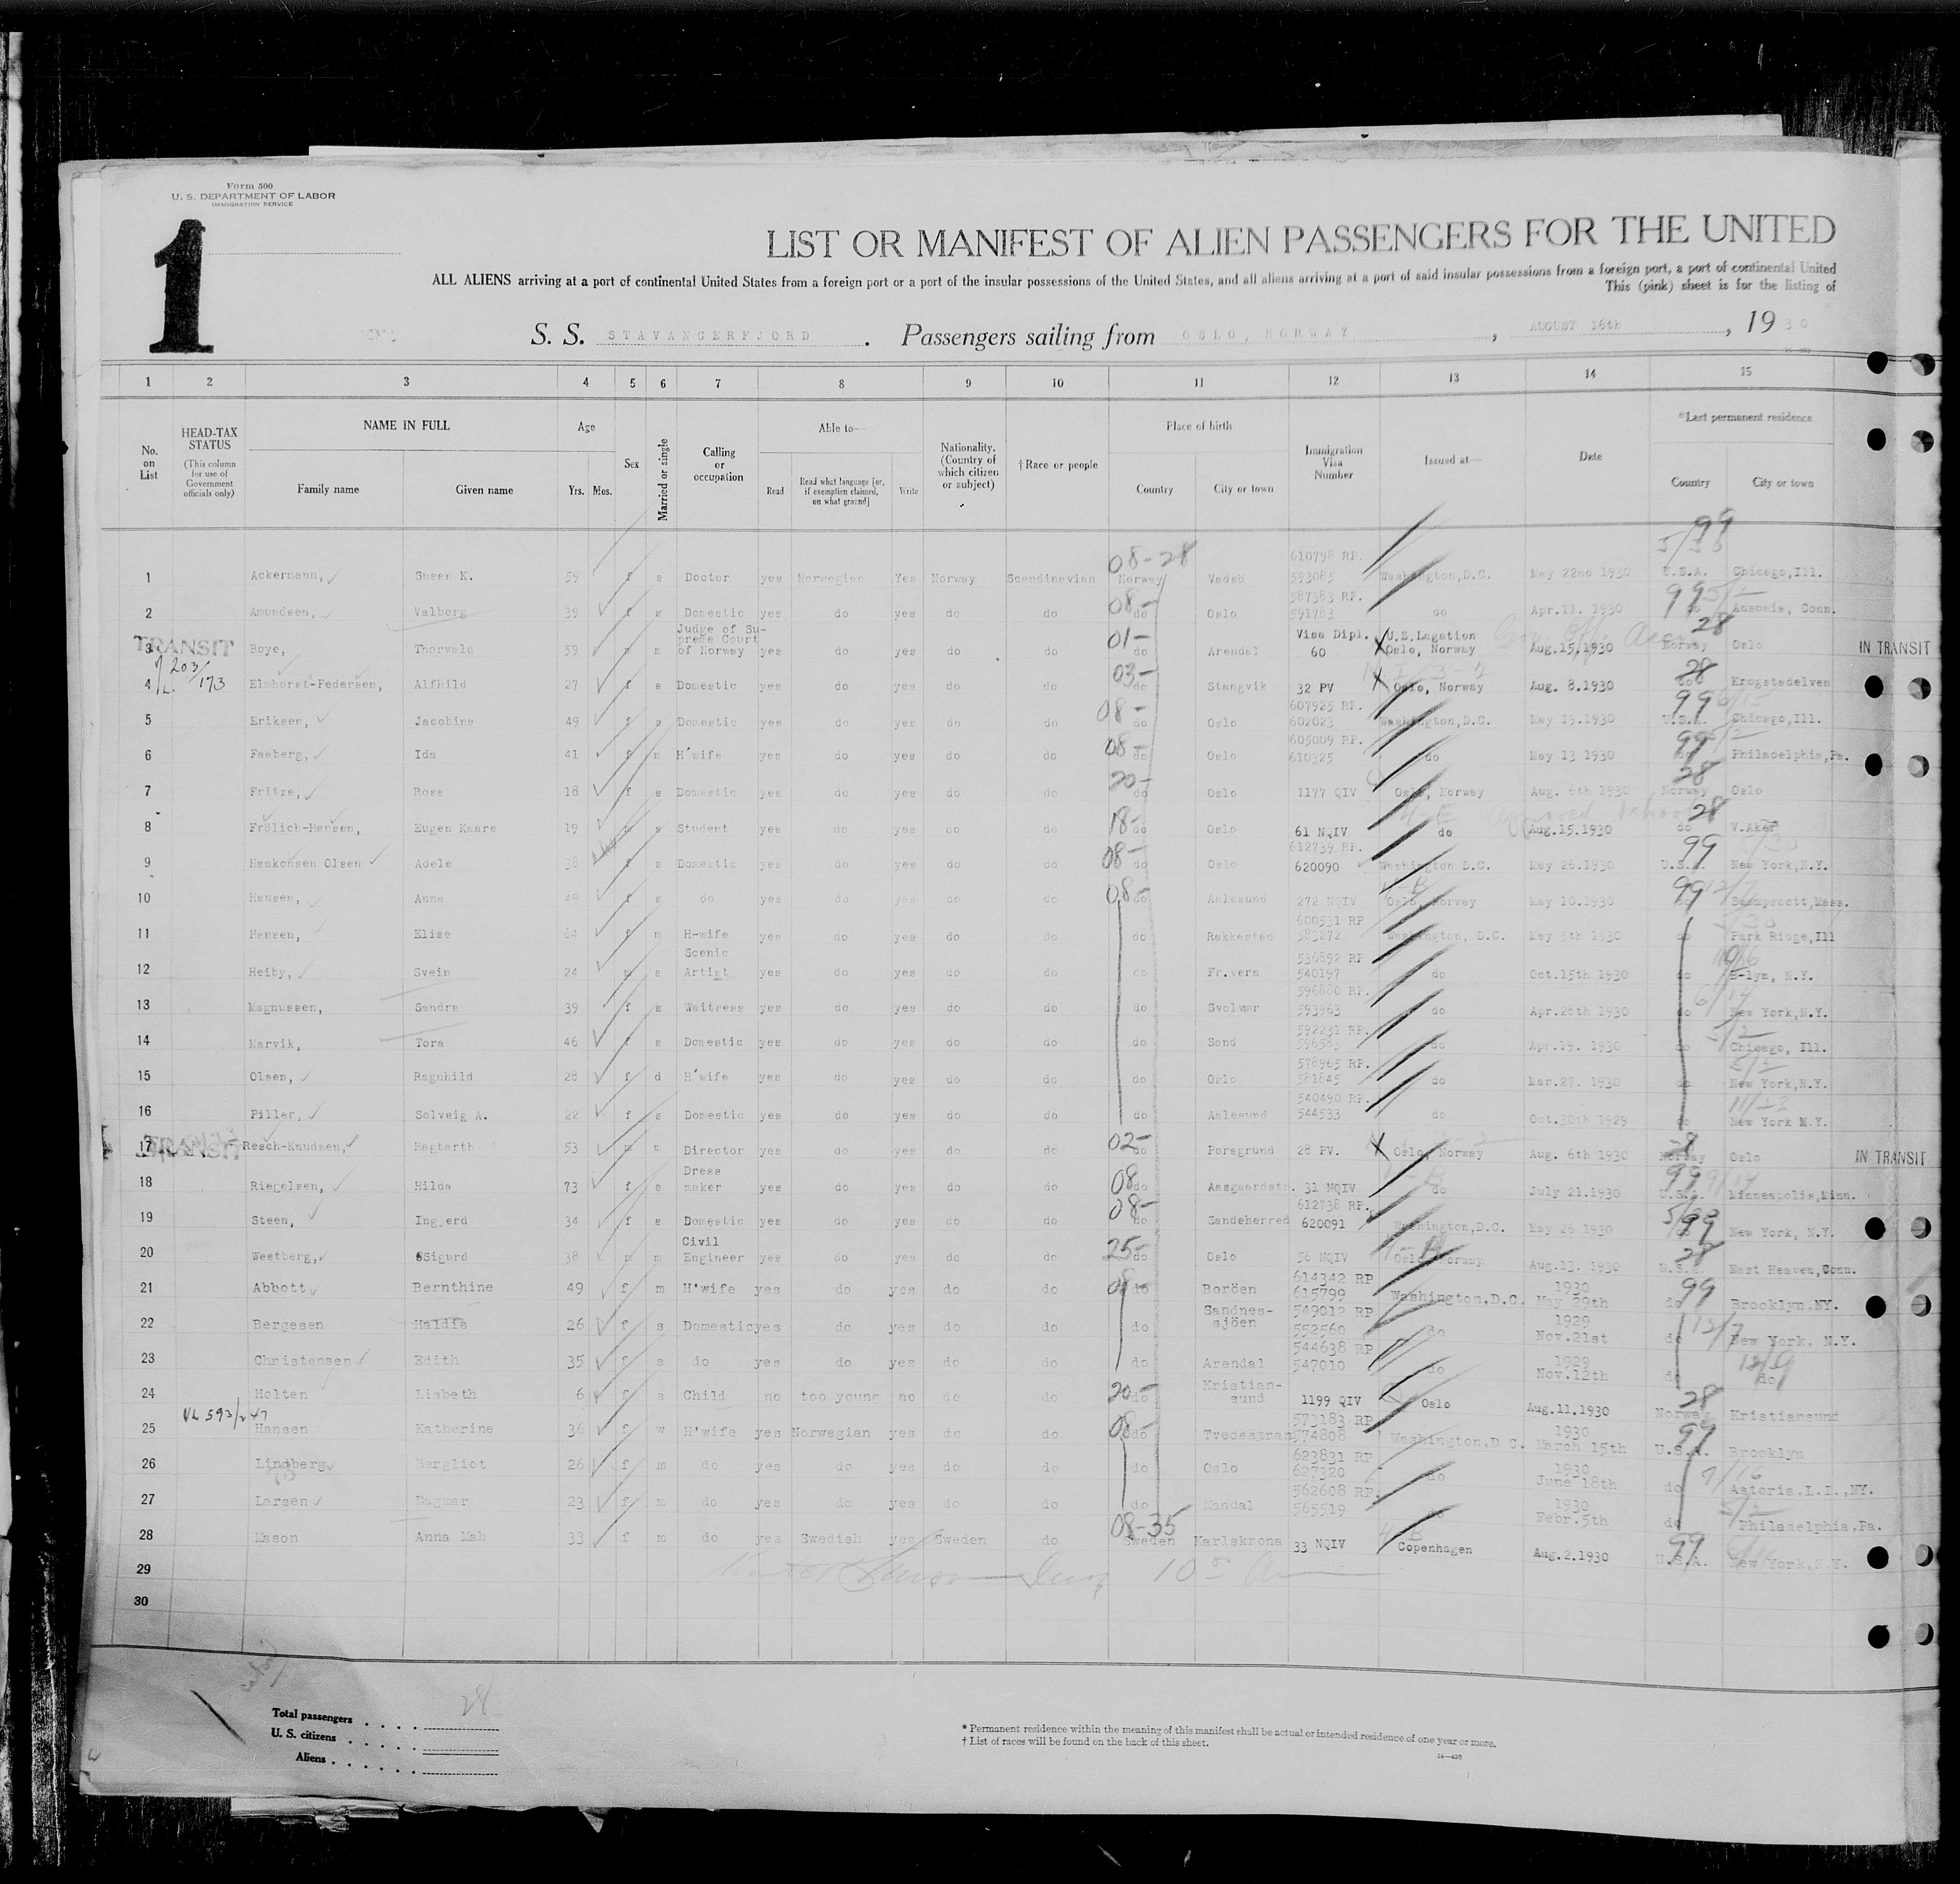 Form 500
U. S. DEPARTMENT OF LABOR
IMMIGRATION SERVICE
1
LIST OR MANIFEST OF ALIEN PASSENGERS FOR THE UNITED
ALL ALIENS arriving at a port of continental United States from a foreign port or a port of the insular possessions of the United States, and all aliens arriving at a port of said insular possessions from a foreign port, a port of continental United
This (pink) sheet is for the listing of
S. S. STAVANGERFJORD . Passengers sailing from OSLO, NORWAY , AUGUST 16th , 1930
1 2 3 4 5 6 7 8 9 10 11 12 13 14 15
No. on List HEAD-TAX STATUS (This column for use of Government officials only) NAME IN FULL Family name Given name Age Yrs. Mos. Sex Married or single Calling or occupation Able to— Read Read what language [or, if exemption claimed, on what ground] Write Nationality. (Country of which citizen or subject) †Race or people Place of birth Country City or town Immigration Visa Number Issued at— Date *Last permanent residence Country City or town
1 Ackermann, Susan K. 59 f s Doctor yes Norwegian Yes Norway Scandinavian 08-28 Norway Vadsö 610798 RP. 593085 Washington,D.C. May 22nd 1930 99 U.S.A. Chicago,Ill.
2 Amundsen, Valborg 39 f s Domestic yes do yes do do 08- do Oslo 587383 RP. 591783 do Apr.11. 1930 99 do Ansonia, Conn.
TRANSIT 3 Boye, Thorvald 59 m m Judge of Supreme Court of Norway yes do yes do do 01- do Arendal Visa Dipl. 60 U.S.Legation Oslo, Norway Aug.15,1930 28 Norway Oslo IN TRANSIT
4 203/173 Elmhorst-Pedersen, Alfhild 27 f s Domestic yes do yes do do 03- do Stangvik 32 PV Oslo, Norway Aug. 8.1930 28 do Krogstadelven
5 Eriksen, Jacobine 49 f s Domestic yes do yes do do 08- do Oslo 607925 RP. 602023 Washington,D.C. May 19.1930 99 U.S.A. Chicago,Ill.
6 Faaberg, Ida 41 f m H'wife yes do yes do do 08- do Oslo 605009 RP. 610325 do May 13 1930 99 do Philadelphia,Pa.
7 Fritze, Rose 18 f s Domestic yes do yes do do 20- do Oslo 1177 QIV Oslo, Norway Aug. 6th 1930 28 Norway Oslo
8 Frölich-Hansen, Eugen Kaare 19 m s Student yes do yes do do 18- do Oslo 61 NQIV do Aug.15.1930 28 do V.Aker
9 Haakonsen Olsen Adele 38 f s Domestic yes do yes do do 08- do Oslo 612739 RP. 620090 Washington D.C. May 26.1930 99 U.S.A. New York,N.Y.
10 Hansen, Anna 49 f s do yes do yes do do 08- do Aalesund 272 NQIV Oslo, Norway May 10.1930 99 do Swampscott,Mass.
11 Hansen, Elise 64 f m H-wife yes do yes do do do Rakkestad 600531 RP 583272 Washington, D.C. May 5th 1930 do Park Ridge,Ill
12 Heiby, Svein 24 m s Scenic Artist yes do yes do do do Fr.vern 536892 RP 540197 do Oct.15th 1930 do B-lyn, N.Y.
13 Magnussen, Sandra 39 f s Waitress yes do yes do do do Svolvær 596880 RP. 593963 do Apr.28th 1930 do New York,N.Y.
14 Marvik, Tora 46 f s Domestic yes do yes do do do Sand 592231 RP. 596583 do Apr.19. 1930 do Chicago, Ill.
15 Olsen, Ragnhild 28 f d H'wife yes do yes do do do Oslo 578965 RP. 581845 do Mar.27. 1930 do New York,N.Y.
16 Piller, Solveig A. 22 f s Domestic yes do yes do do do Aalesund 540490 RP. 544533 do Oct.30th 1929 do New York N.Y.
17 TRANSIT Resch-Knudsen, Hagbarth 53 m m Director yes do yes do do 02- do Porsgrund 28 PV. Oslo, Norway Aug. 6th 1930 28 Norway Oslo IN TRANSIT
18 Riegelsen, Hilda 73 f s Dress maker yes do yes do do 08 do Aasgaardstn. 31 NQIV do July 21.1930 99 U.S.A. Minneapolis,Minn.
19 Steen, Ingjerd 34 f s Domestic yes do yes do do 08- do Sandeherred 612738 RP. 620091 Washington,D.C. May 26 1930 99 New York, N.Y.
20 Westberg, Sigurd 38 m m Civil Engineer yes do yes do do 25- do Oslo 56 NQIV Oslo, Norway Aug.13. 1930 28 U.S.A. East Heaven,Conn.
21 Abbott Bernthine 49 f m H'wife yes do yes do do 08- do Boröen 614342 RP 615799 Washington,D.C. 1930 May 29th 99 do Brooklyn,NY.
22 Bergesen Haldis 26 f s Domestic yes do yes do do do Sandnessjöen 549012 RP 552560 do 1929 Nov.21st do New York. N.Y.
23 Christensen Edith 35 f s do yes do yes do do do Arendal 544638 RP 547010 do 1929 Nov.12th do do
24 Holten Lisbeth 6 f s Child no too young no do do 20- do Kristiansund 1199 QIV Oslo Aug.11.1930 28 Norway Kristiansund
25 Hansen Katherine 36 f w H'wife yes Norwegian yes do do 08- do Tvedestrand 573183 RP 574808 Washington,D C. 1930 March 15th 99 U.S.A. Brooklyn
26 Lindberg Bergliot 26 f m do yes do yes do do do Oslo 623831 RP 627320 do 1930 June 18th do Astoria.L.I.,NY.
27 Larsen Dagmar 23 f m do yes do yes do do do Mandal 562608 RP. 565519 do 1930 Febr.5th do Philadelphia,Pa.
28 Mason Anna Mah 33 f m do yes Swedish yes Sweden do 08-35 Sweden Karlskrona 33 NQIV Copenhagen Aug.2.1930 99 U.S.A. New York,N.Y.
29
30
Total passengers 28
U. S. citizens
Aliens
* Permanent residence within the meaning of this manifest shall be actual or intended residence of one year or more.
† List of races will be found on the back of this sheet.